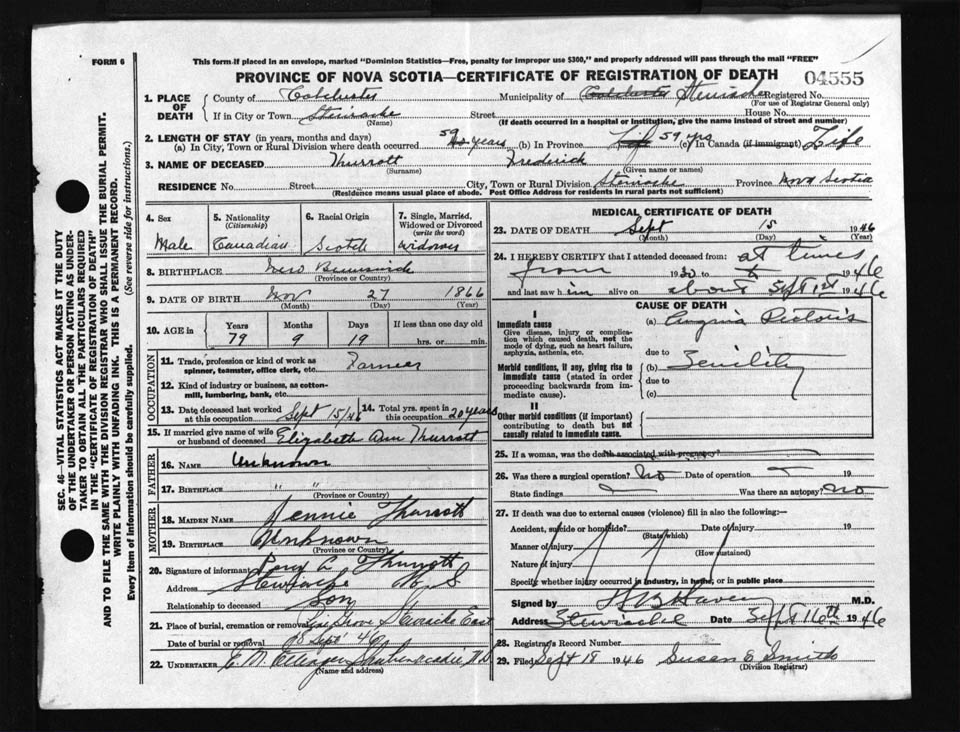 FORM 6
This form if placed in an envelope, marked "Dominion Statistics—Free, penalty for improper use $300," and properly addressed will pass through the mail "FREE"
PROVINCE OF NOVA SCOTIA—CERTIFICATE OF REGISTRATION OF DEATH
04555
1. PLACE OF DEATH County of Colchester Municipality of Colchester Stewiacke Registered No.
(For use of Registrar General only)
If in City or Town Stewiacke Street House No.
(Name) (If death occurred in a hospital or institution, give the name instead of street and number)
2. LENGTH OF STAY (in years, months and days)
(a) In City, Town or Rural Division where death occurred 59 years (b) In Province Life 59 yrs (c) In Canada (if immigrant) Life
3. NAME OF DECEASED Thurrott Frederick
(Surname) (Given name or names)
RESIDENCE No. Street City, Town or Rural Division Stewiacke Province Nova Scotia
(Residence means usual place of abode. Post Office Address for residents in rural parts not sufficient)
SEC. 46—VITAL STATISTICS ACT MAKES IT THE DUTY
OF THE UNDERTAKER OR PERSON ACTING AS UNDER-
TAKER TO OBTAIN ALL THE PARTICULARS REQUIRED
IN THE "CERTIFICATE OF REGISTRATION OF DEATH"
AND TO FILE THE SAME WITH THE DIVISION REGISTRAR WHO SHALL ISSUE THE BURIAL PERMIT.
WRITE PLAINLY WITH UNFADING INK. THIS IS A PERMANENT RECORD.
Every item of information should be carefully supplied. (See reverse side for instructions.)
4. Sex 5. Nationality (Citizenship) 6. Racial Origin 7. Single, Married, Widowed or Divorced (write the word)
Male Canadian Scotch widower
8. BIRTHPLACE New Brunswick
(Province or Country)
9. DATE OF BIRTH Nov 27 1866
(Month) (Day) (Year)
10. AGE in Years Months Days If less than one day old
79 9 19 hrs. or min.
OCCUPATION
11. Trade, profession or kind of work as spinner, teamster, office clerk, etc. Farmer
12. Kind of industry or business, as cotton-mill, lumbering, bank, etc.
13. Date deceased last worked at this occupation Sept 15/46 14. Total yrs. spent in this occupation 20 years
15. If married give name of wife or husband of deceased Elizabeth Ann Thurrott
FATHER
16. NAME Unknown
17. BIRTHPLACE " "
(Province or Country)
MOTHER
18. MAIDEN NAME Jennie Thurrott
19. BIRTHPLACE Unknown
(Province or Country)
20. Signature of informant Percy A Thurrott
Address Stewiacke N. S
Relationship to deceased Son
21. Place of burial, cremation or removal Pine Grove Stewiacke East
Date of burial or removal 18 Sept 46
22. UNDERTAKER C M Ettinger Shubenacadie, N.S
(Name and address)
MEDICAL CERTIFICATE OF DEATH
23. DATE OF DEATH Sept 15 1946
(Month) (Day) (Year)
24. I HEREBY CERTIFY that I attended deceased from: at times
from 1930 to 1946
and last saw him alive on about Sept 1st 1946
CAUSE OF DEATH
I
Immediate cause
Give disease, injury or complication which caused death, not the mode of dying, such as heart failure, asphyxia, asthenia, etc.
(a) Angina Pectoris
due to
Morbid conditions, if any, giving rise to immediate cause (stated in order proceeding backwards from immediate cause).
(b) Senility
due to
(c)
II
Other morbid conditions (if important) contributing to death but not causally related to immediate cause.
25. If a woman, was the death associated with pregnancy?
26. Was there a surgical operation? No Date of operation 19
State findings Was there an autopsy? No
27. If death was due to external causes (violence) fill in also the following:—
Accident, suicide or homicide? Date of injury 19
(State which)
Manner of injury
(How sustained)
Nature of injury
Specify whether injury occurred in industry, in home, or in public place
Signed by M.D.
Address Stewiacke Date Sept 16th 1946
28. Registrar's Record Number
29. Filed Sept 18 1946 Susan E Smith
(Division Registrar)